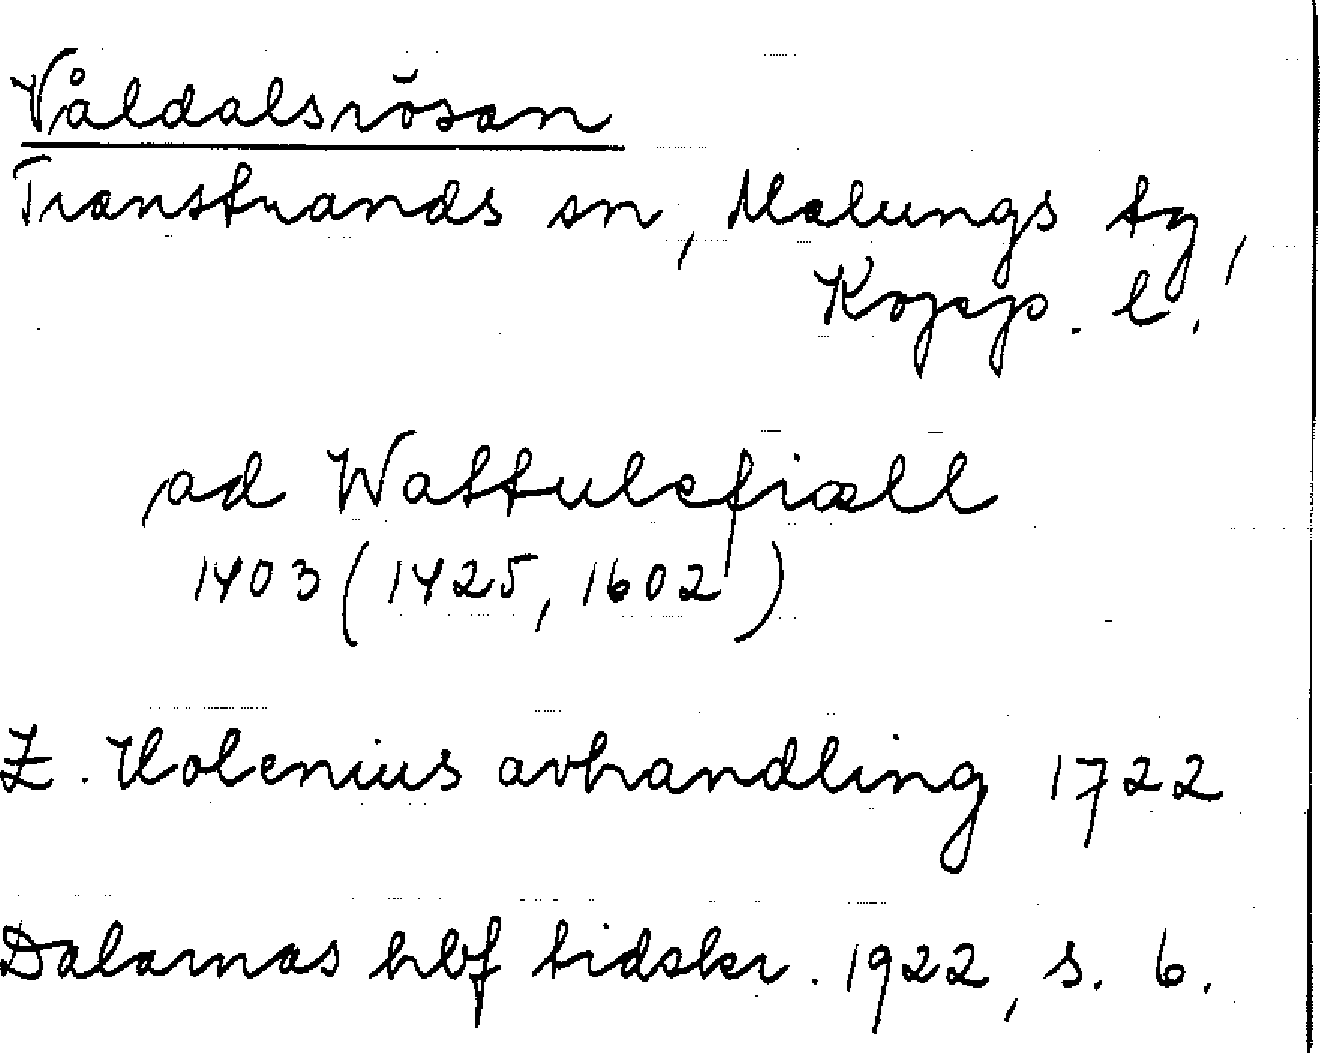 Våldalsrösan
Transtrands sn, Malungs tg,
Kopp. l.
ad Wattulefiæll
1403 (1425, 1602)
Z. Holenius avhandling 1722
Dalarnas hbf tidskr. 1922, s. 6.